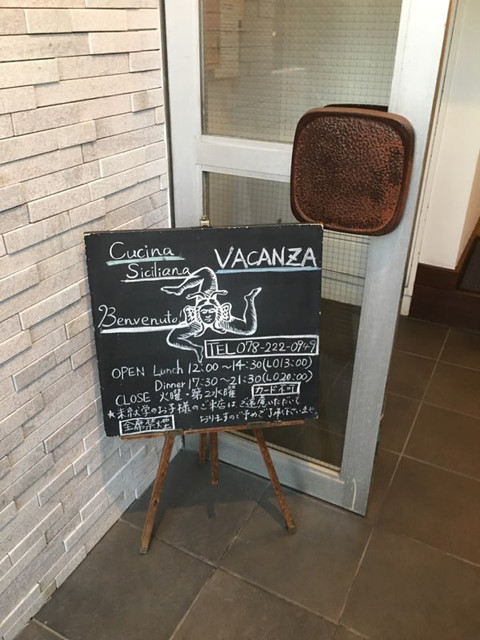 Cucina
Siciliana
VACANZA
Benvenuto!
TEL 078-222-0949
OPEN Lunch 12:00〜14:30(LO13:00)
Dinner 17:30〜21:30(LO20:00)
CLOSE 火曜・第2水曜 カード不可
★未就学のお子様のご来店はご遠慮いただいて
おりますので予めご了承くださいませ
全席禁煙